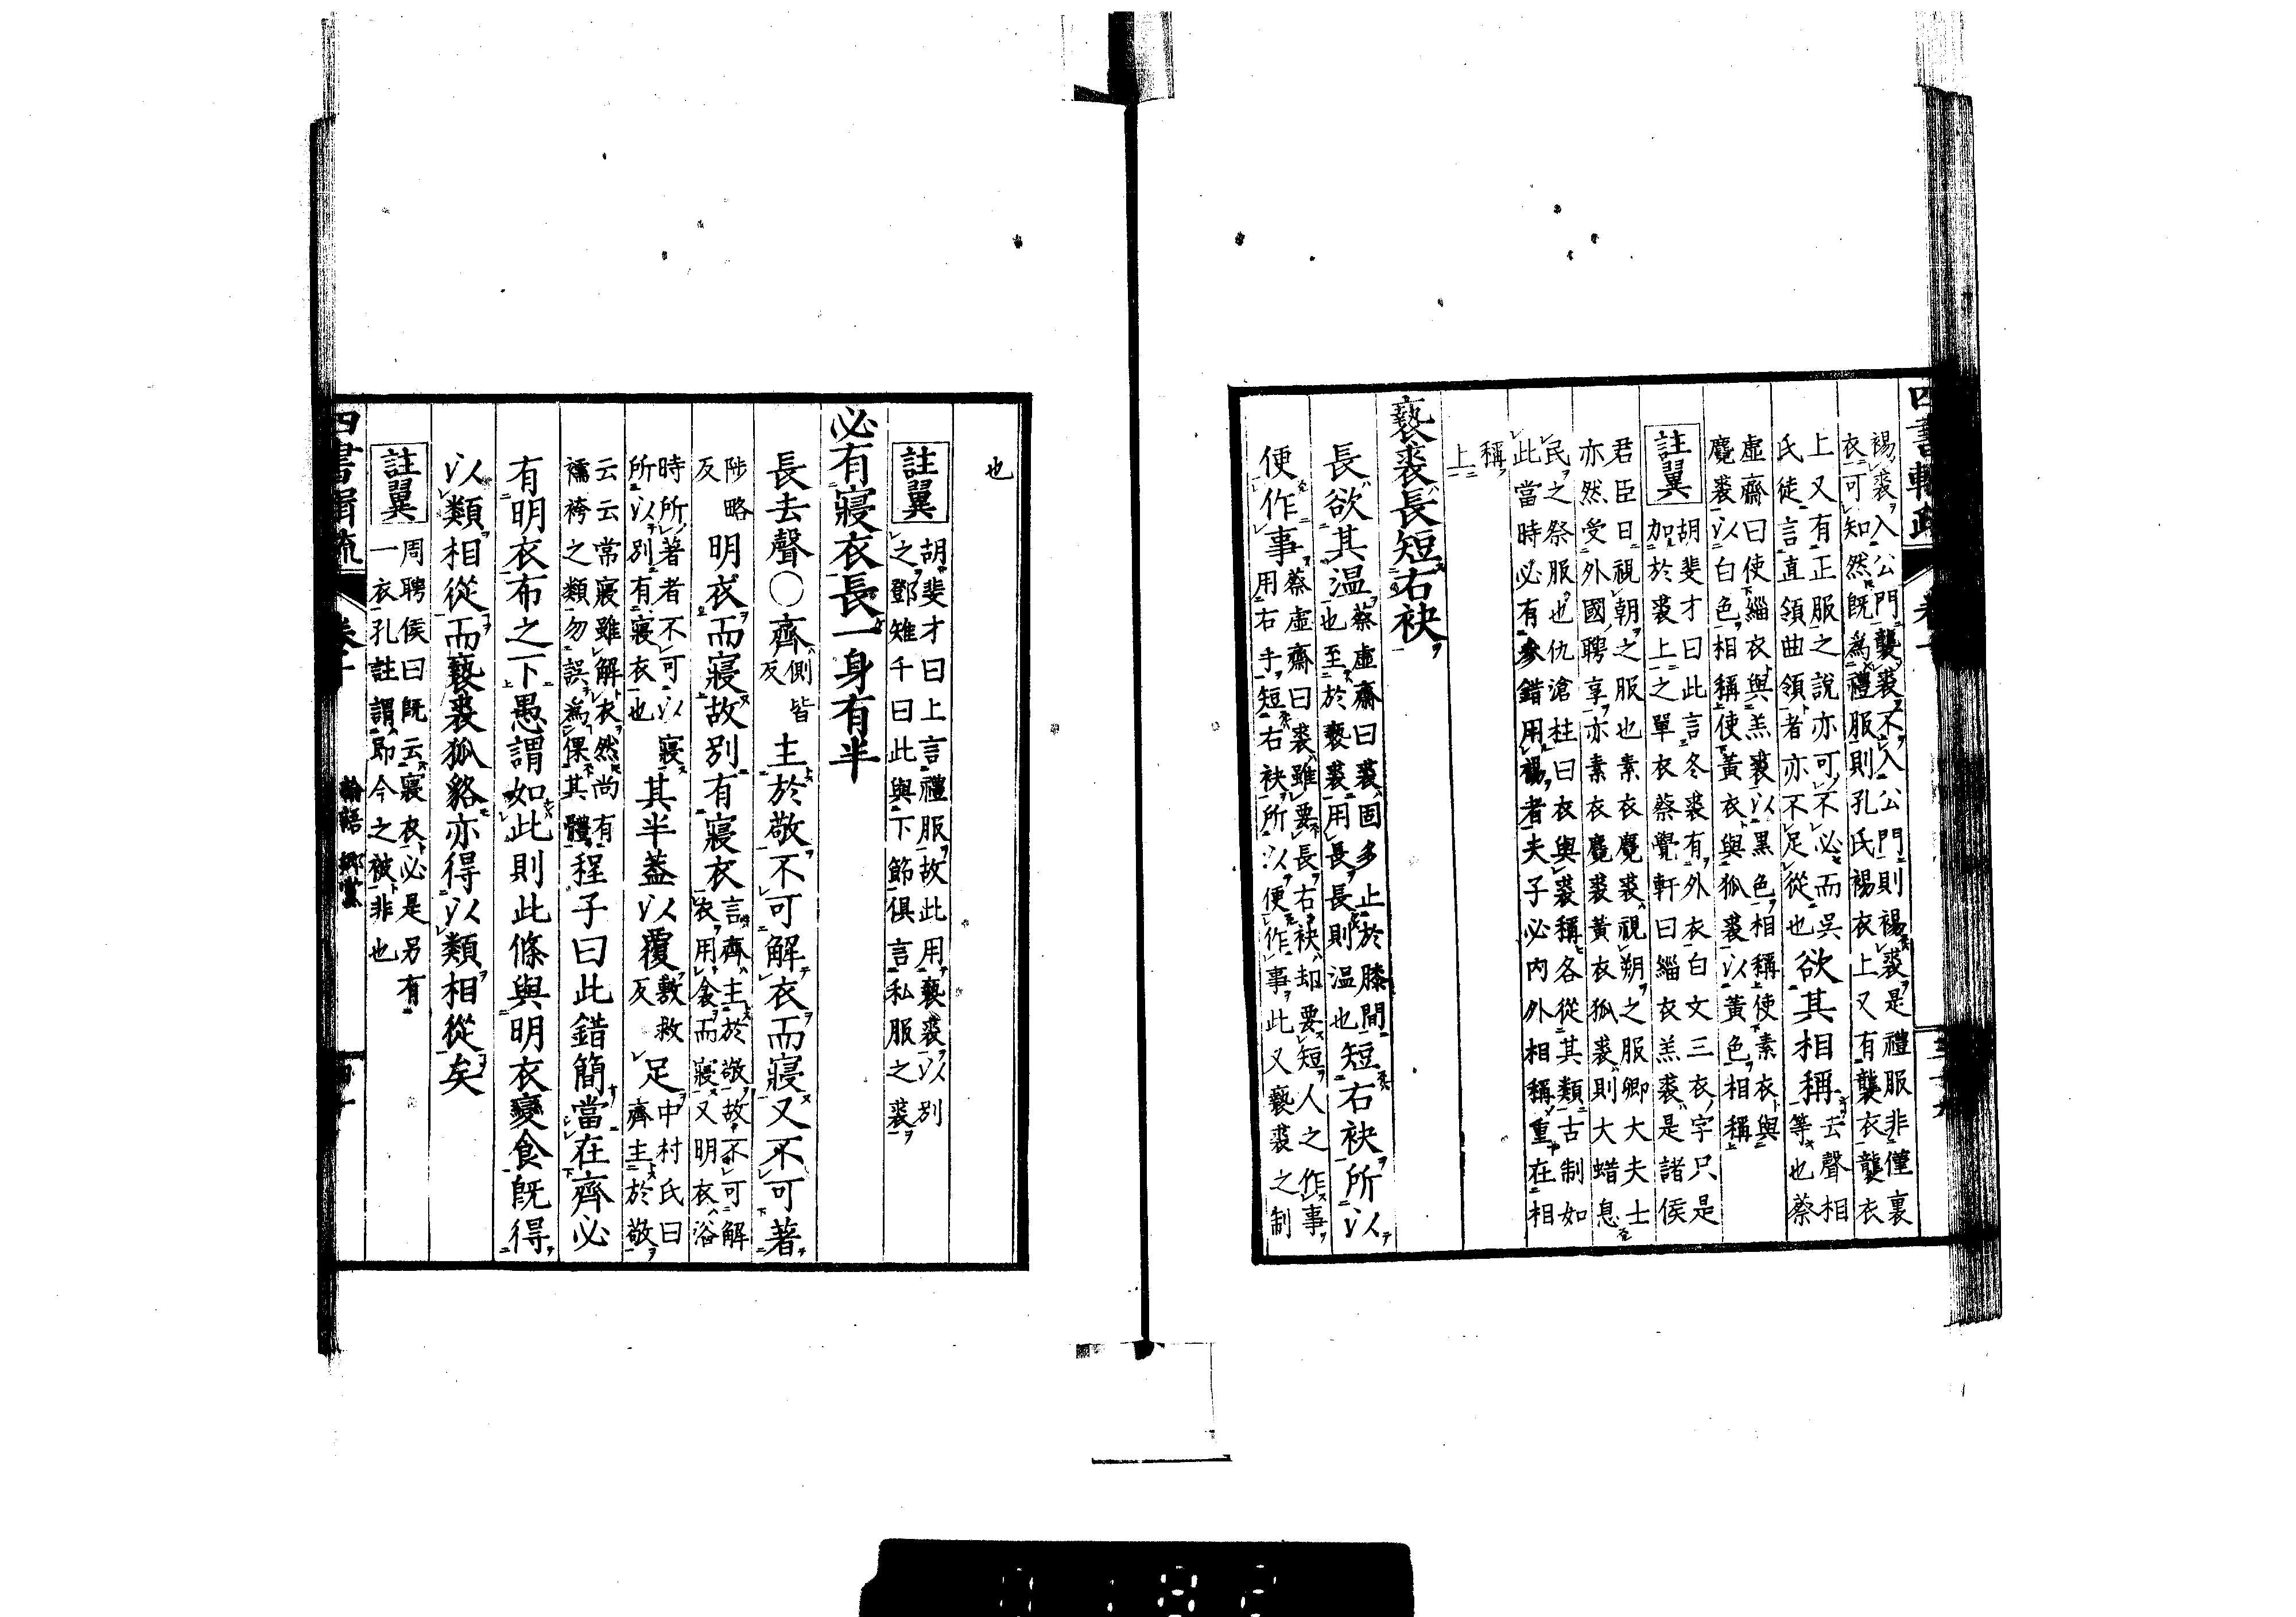 四書輯疏
裼裘入公門襲裘不入公門則裼裘是禮服非僅裏
衣可知然既為禮服則孔氏裼衣上又有襲衣襲衣
上又有正服之說亦可不必而吳
氏徒言直領曲領者亦不足從也
欲其相稱
去聲相
等也蔡
虛齋曰使緇衣與羔裘以黑色相稱使素衣與
麑裘以白色相稱使黃衣與狐裘以黃色相稱
註翼
胡斐才曰此言冬裘有外衣白文三衣字只是
加於裘上之單衣蔡覺軒曰緇衣羔裘是諸侯
君臣日視朝之服也素衣麑裘視朔之服卿大夫士
亦然受外國聘享亦素衣麑裘黃衣狐裘則大蜡息
民之祭服也仇滄柱曰衣與裘稱各從其類古制如
此當時必有參錯用裼者夫子必內外相稱重在相
稱
上
褻裘長短右袂
長欲其温
蔡虛齋曰裘固多止於膝間
也至於褻裘用長長則温也
短右袂所以
便作事
蔡虛齋曰裘雖要長右袂却要短人之作事
用右手短右袂所以便作事此又褻裘之制
也
註翼
胡斐才曰上言禮服故此用褻裘以別
之鄧雉千曰此與下節俱言私服之裘
必有寢衣長一身有半
長去聲○齊
側皆
反
主於敬不可解衣而寢又不可著
陟略
反
明衣而寢故別有寢衣
言齊主於敬故不可解
衣用衾而寢又明衣浴
時所著者不可以寢
所以別有寢衣也
其半蓋以覆
敷救
反
足
中村氏曰
齊主於敬
云云常寢雖解衣然尚有
襦袴之類勿誤為倮其體
程子曰此錯簡當在齊必
有明衣布之下愚謂如此則此條與明衣變食既得
以類相從而褻裘狐貉亦得以類相從矣
註翼
周聘侯曰既云寢衣必是另有
一衣孔註謂即今之被非也
四書輯疏
論語 鄉黨